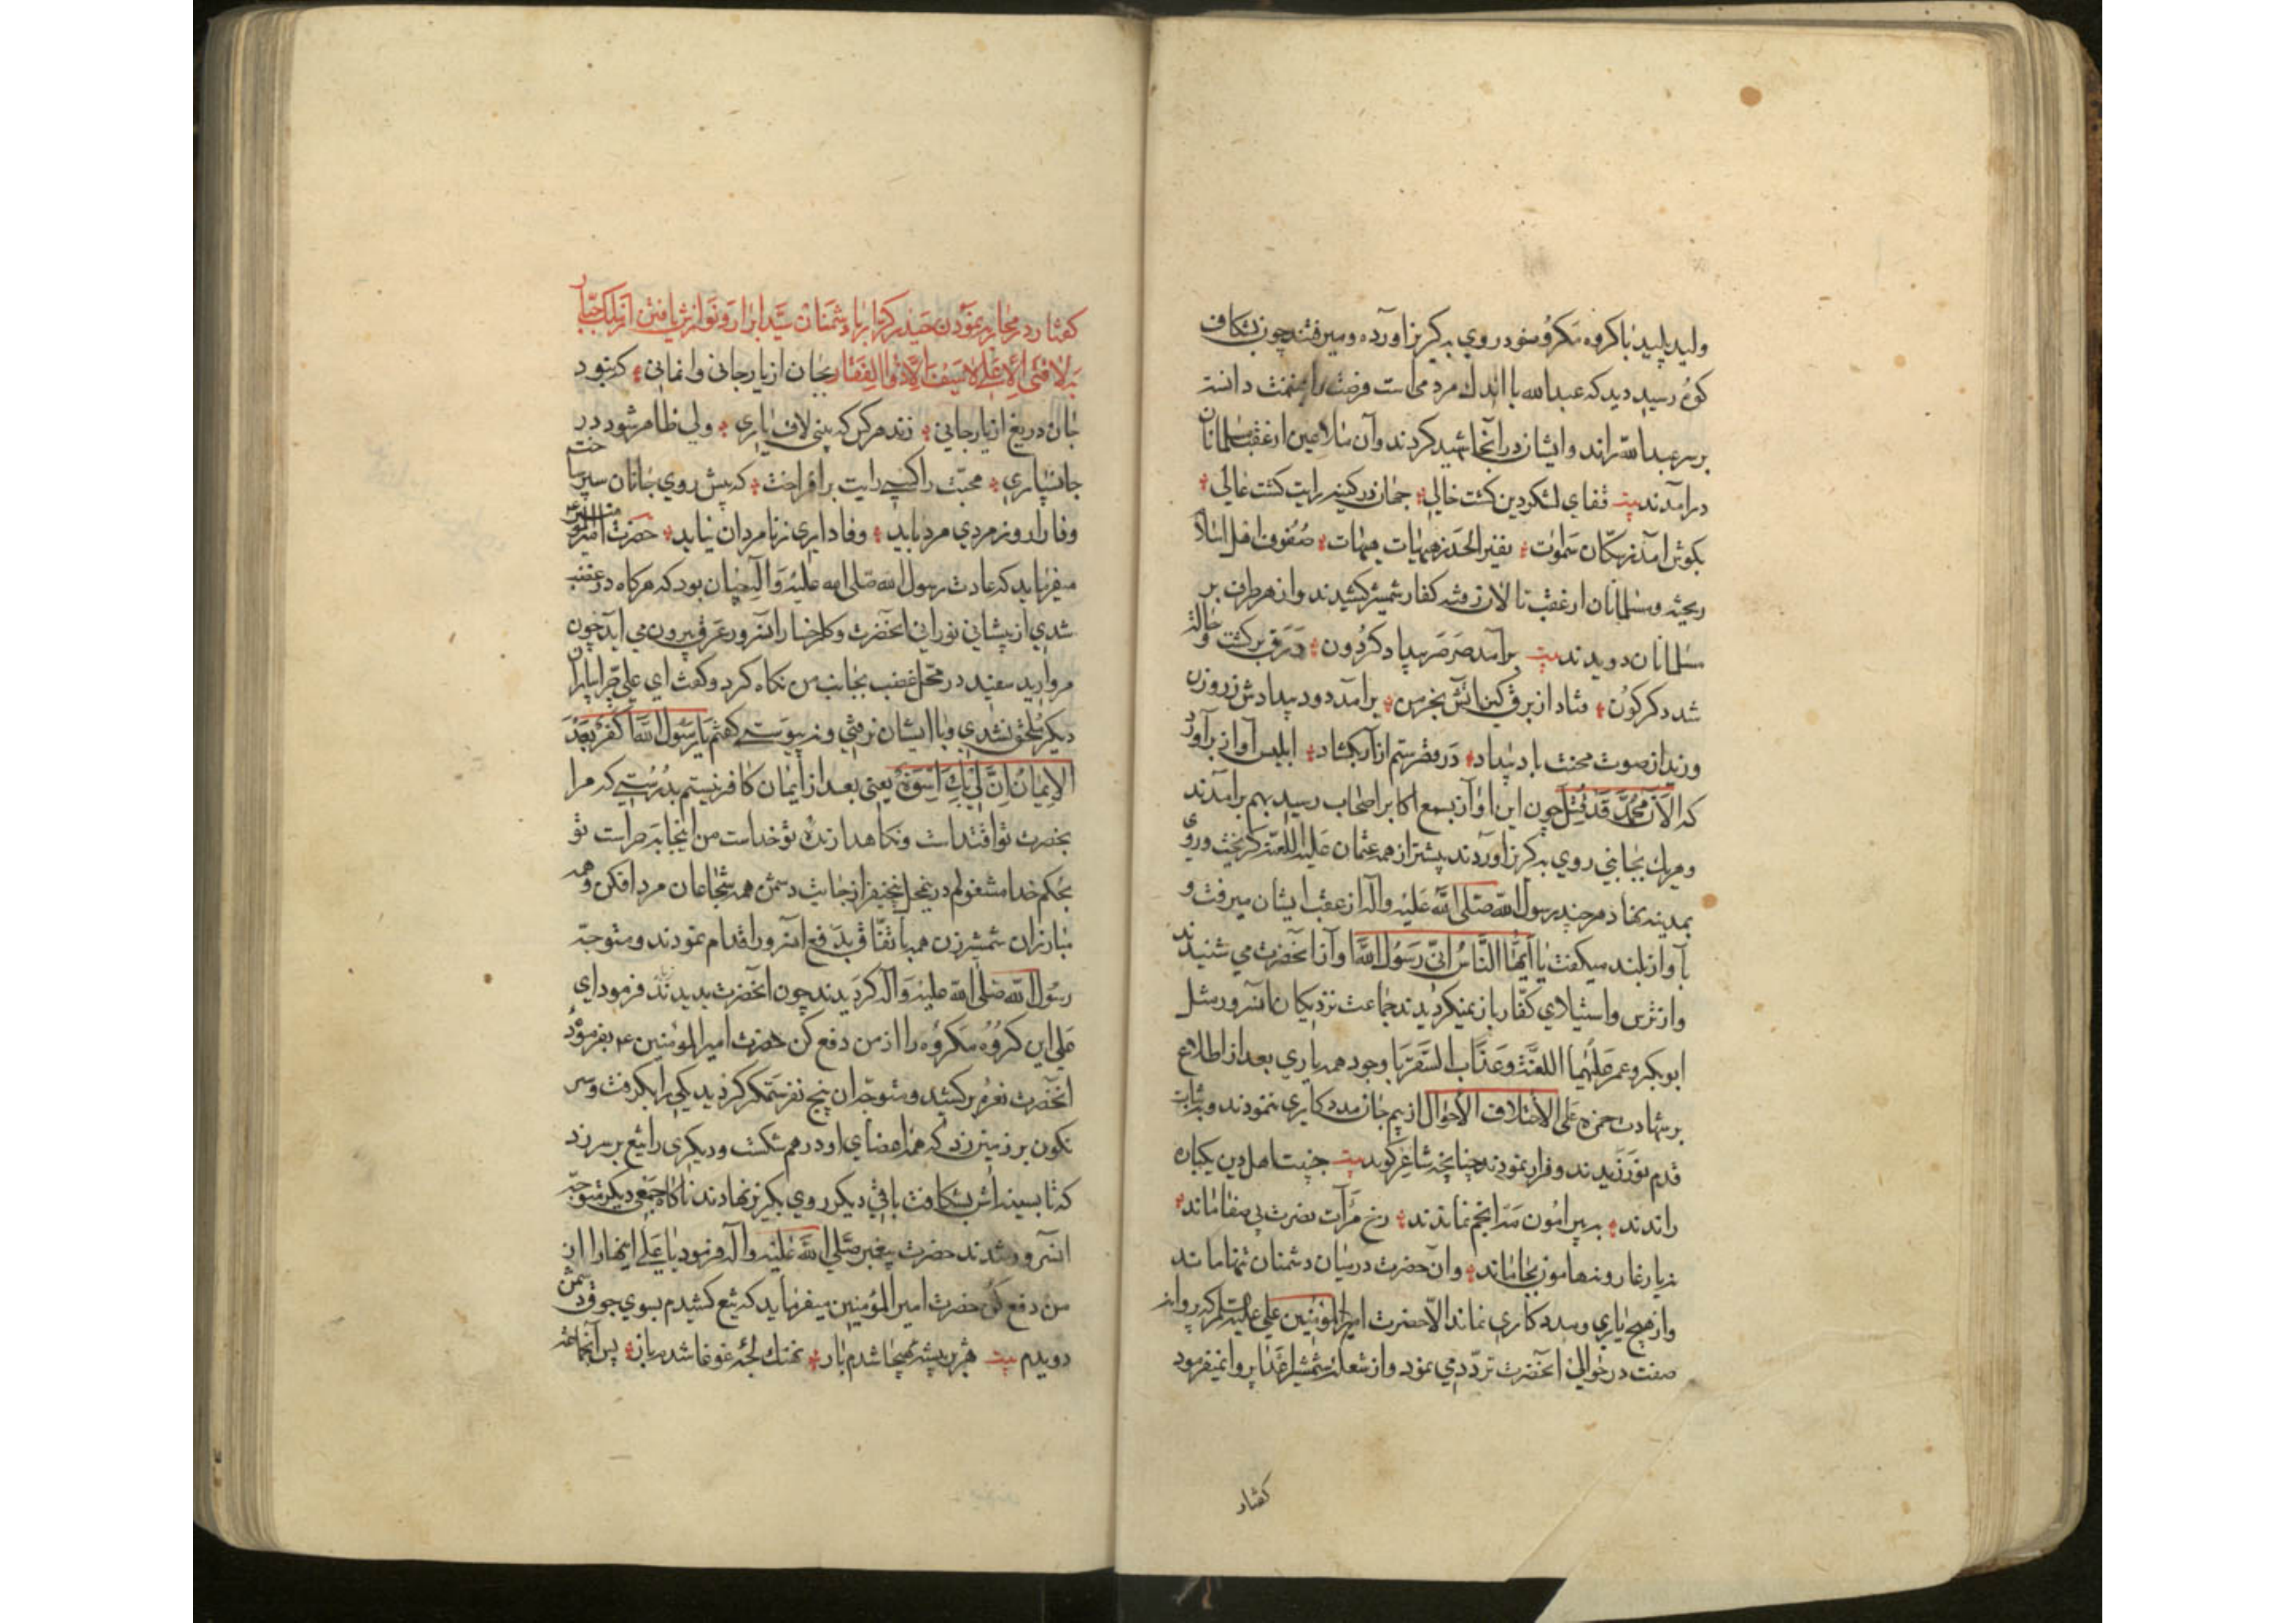 ولید پلید با کروه مکروه خود روی به کریز آورده ومیرفتند چون بشکاف
کوه رسید دید که عبدالله با اندک مردمی است فرصت را غنیمت دانسته
بر سر عبدالله راند وایشان در آنجا شهید کردند وآن ملاعین از عقب مسلمانان
درآمدند بیت قفای لشکر دین کشت خالی جهان در کینه رایت کشت عالی
بکوش آمد ز سکان سموات نفیر الحذر هیهات هیهات صفوف اهل اسلام
ریخته ومسلمانان از عقب تالان رفته کفار شمشیر کشیدند واز هر طرف بر
مسلمانان دویدند بیت برآمد صرصر بیداد کردون ورق برکشت و حالت
شد دکرکون فتاد از برق کین آتش بخرمن برآمد دود بیدادش ز روزن
وزید از صوت محنت باد بیداد در قصر ستم از آن بکشاد ابلیس آواز برآورد
که الآن محمد قد قتل چون این آواز بسمع اکابر اصحاب رسید بهم برآمدند
وهر یک بجانبی روی به کریز آوردند پیشتر از همه عثمان علیه اللعنه کریخت وروی
بمدینه نهاد هر چند رسول الله صلی الله علیه وآله از عقب ایشان میرفت و
بآواز بلند میکفت یا ایها الناس انی رسول الله وآن آنحضرت می شنیدند
واز ترس واستیلای کفار باز نمیکردیدند جماعت نزدیکان آنسرور مثل
ابوبکر وعمر علیهما اللعنة وعذاب السقر با وجود همه یاری بعد از اطلاع
بر شهادت حمزه علی الاختلاف الاحوال از بیم جان مددکاری ننمودند وبر ثبات
قدم نورزیدند وفرار نمودند چنانچه شاعر کوید بیت جنیبت اهل دین یکباره
راندند به پیرامون مه انجم نماندند رخ مرآت نصرت بی صفا ماند
نه یار غار ونه هامون بجا ماند وآن حضرت در میان دشمنان تنها ماند
واز هیچ یاری ومددکاری نماند الا حضرت امیر المؤمنین علی علیه السلام که پروانه
صفت در حوالی آنحضرت تردد می نمود واز شعله شمشیر اعدا پروا نمیفرمود
کفتار
کفتار در محاربه نمودن حیدر کرار با دشمنان سید ابرار ونوازش یافتن از ملک جبار
به لا فتی الا علی لا سیف الا ذو الفقار بجان از یار جانی وانمانی که نبود
جان دریغ از یار جانی زند هر کس که بینی لاف یاری ولی ظاهر شود در
جانسپاری محبت را کسی رایت برافراخت که پیش روی جانان سپر ساخت
وفا را روز مردی مرد باید وفاداری ز نامردان نیاید حضرت امیر المؤمنین
میفرماید که عادت رسول الله صلی الله علیه وآله چنان بود که هرکاه در غضب
شدی از پیشانی نورانی آنحضرت وکل رخسار آنسرور عرق بیرون می آید چون
مروارید سفید در محل غضب بجانب من نکاه کرد وکفت ای علی چرا بیاران
دیکر ملحق نشدی وبا ایشان نرفتی ونپیوستی کفتم یا رسول الله أکفر بعد
الایمان ان لی بک اسوة یعنی بعد از ایمان کافر نیستم بدرستی که مرا
بحضرت تو اقتداست ونکاهدارنده تو خداست من اینجا به حراست تو
بحکم خدا مشغولم در ینمحل پنج نفر از جانب دشمن همه شجاعان مرد افکن وهمه
مبارزان شمشیرزن همه باتفاق بدفع آنسرور اقدام نمودند ومتوجه
رسول الله صلی الله علیه وآله کردیدند چون آنحضرت بدیدند فرمود ای
علی این کروه مکروه را از من دفع کن حضرت امیر المؤمنین ع بفرموده
آنحضرت نعره برکشید ومتوجه آن پنج نفر ستمکر کردید یکی را بکرفت وسر
نکون بر زمین زد که همه اعضای او در هم شکست ودیکری را تیغ بر سر زد
که تا بسینه اش بشکافت باقی دیکر روی بکریز نهادند ناکاه جمعی دیکر متوجه
آنسرور شدند حضرت پیغمبر صلی الله علیه وآله فرمود یا علی اینها را از
من دفع کن حضرت امیر المؤمنین میفرماید که تیغ کشیدم بسوی جوق دشمن
دویدم بیت هژبر بیشه هیجا شدم باز نهنک لجه غوغا شدم باز پس آنجماعت